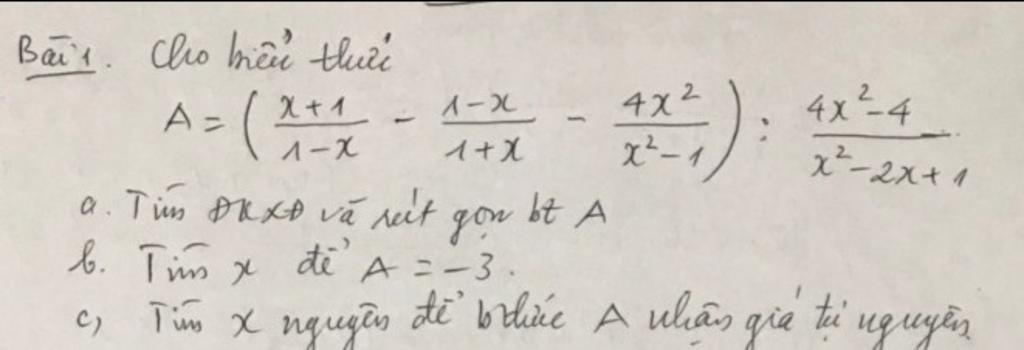 Bài 1. Cho biểu thức
A = ( \frac{x+1}{1-x} - \frac{1-x}{1+x} - \frac{4x^2}{x^2-1} ) : \frac{4x^2-4}{x^2-2x+1}
a. Tìm ĐKXĐ và rút gọn bt A
b. Tìm x để A = -3.
c, Tìm x nguyên để bthức A nhận giá trị nguyên